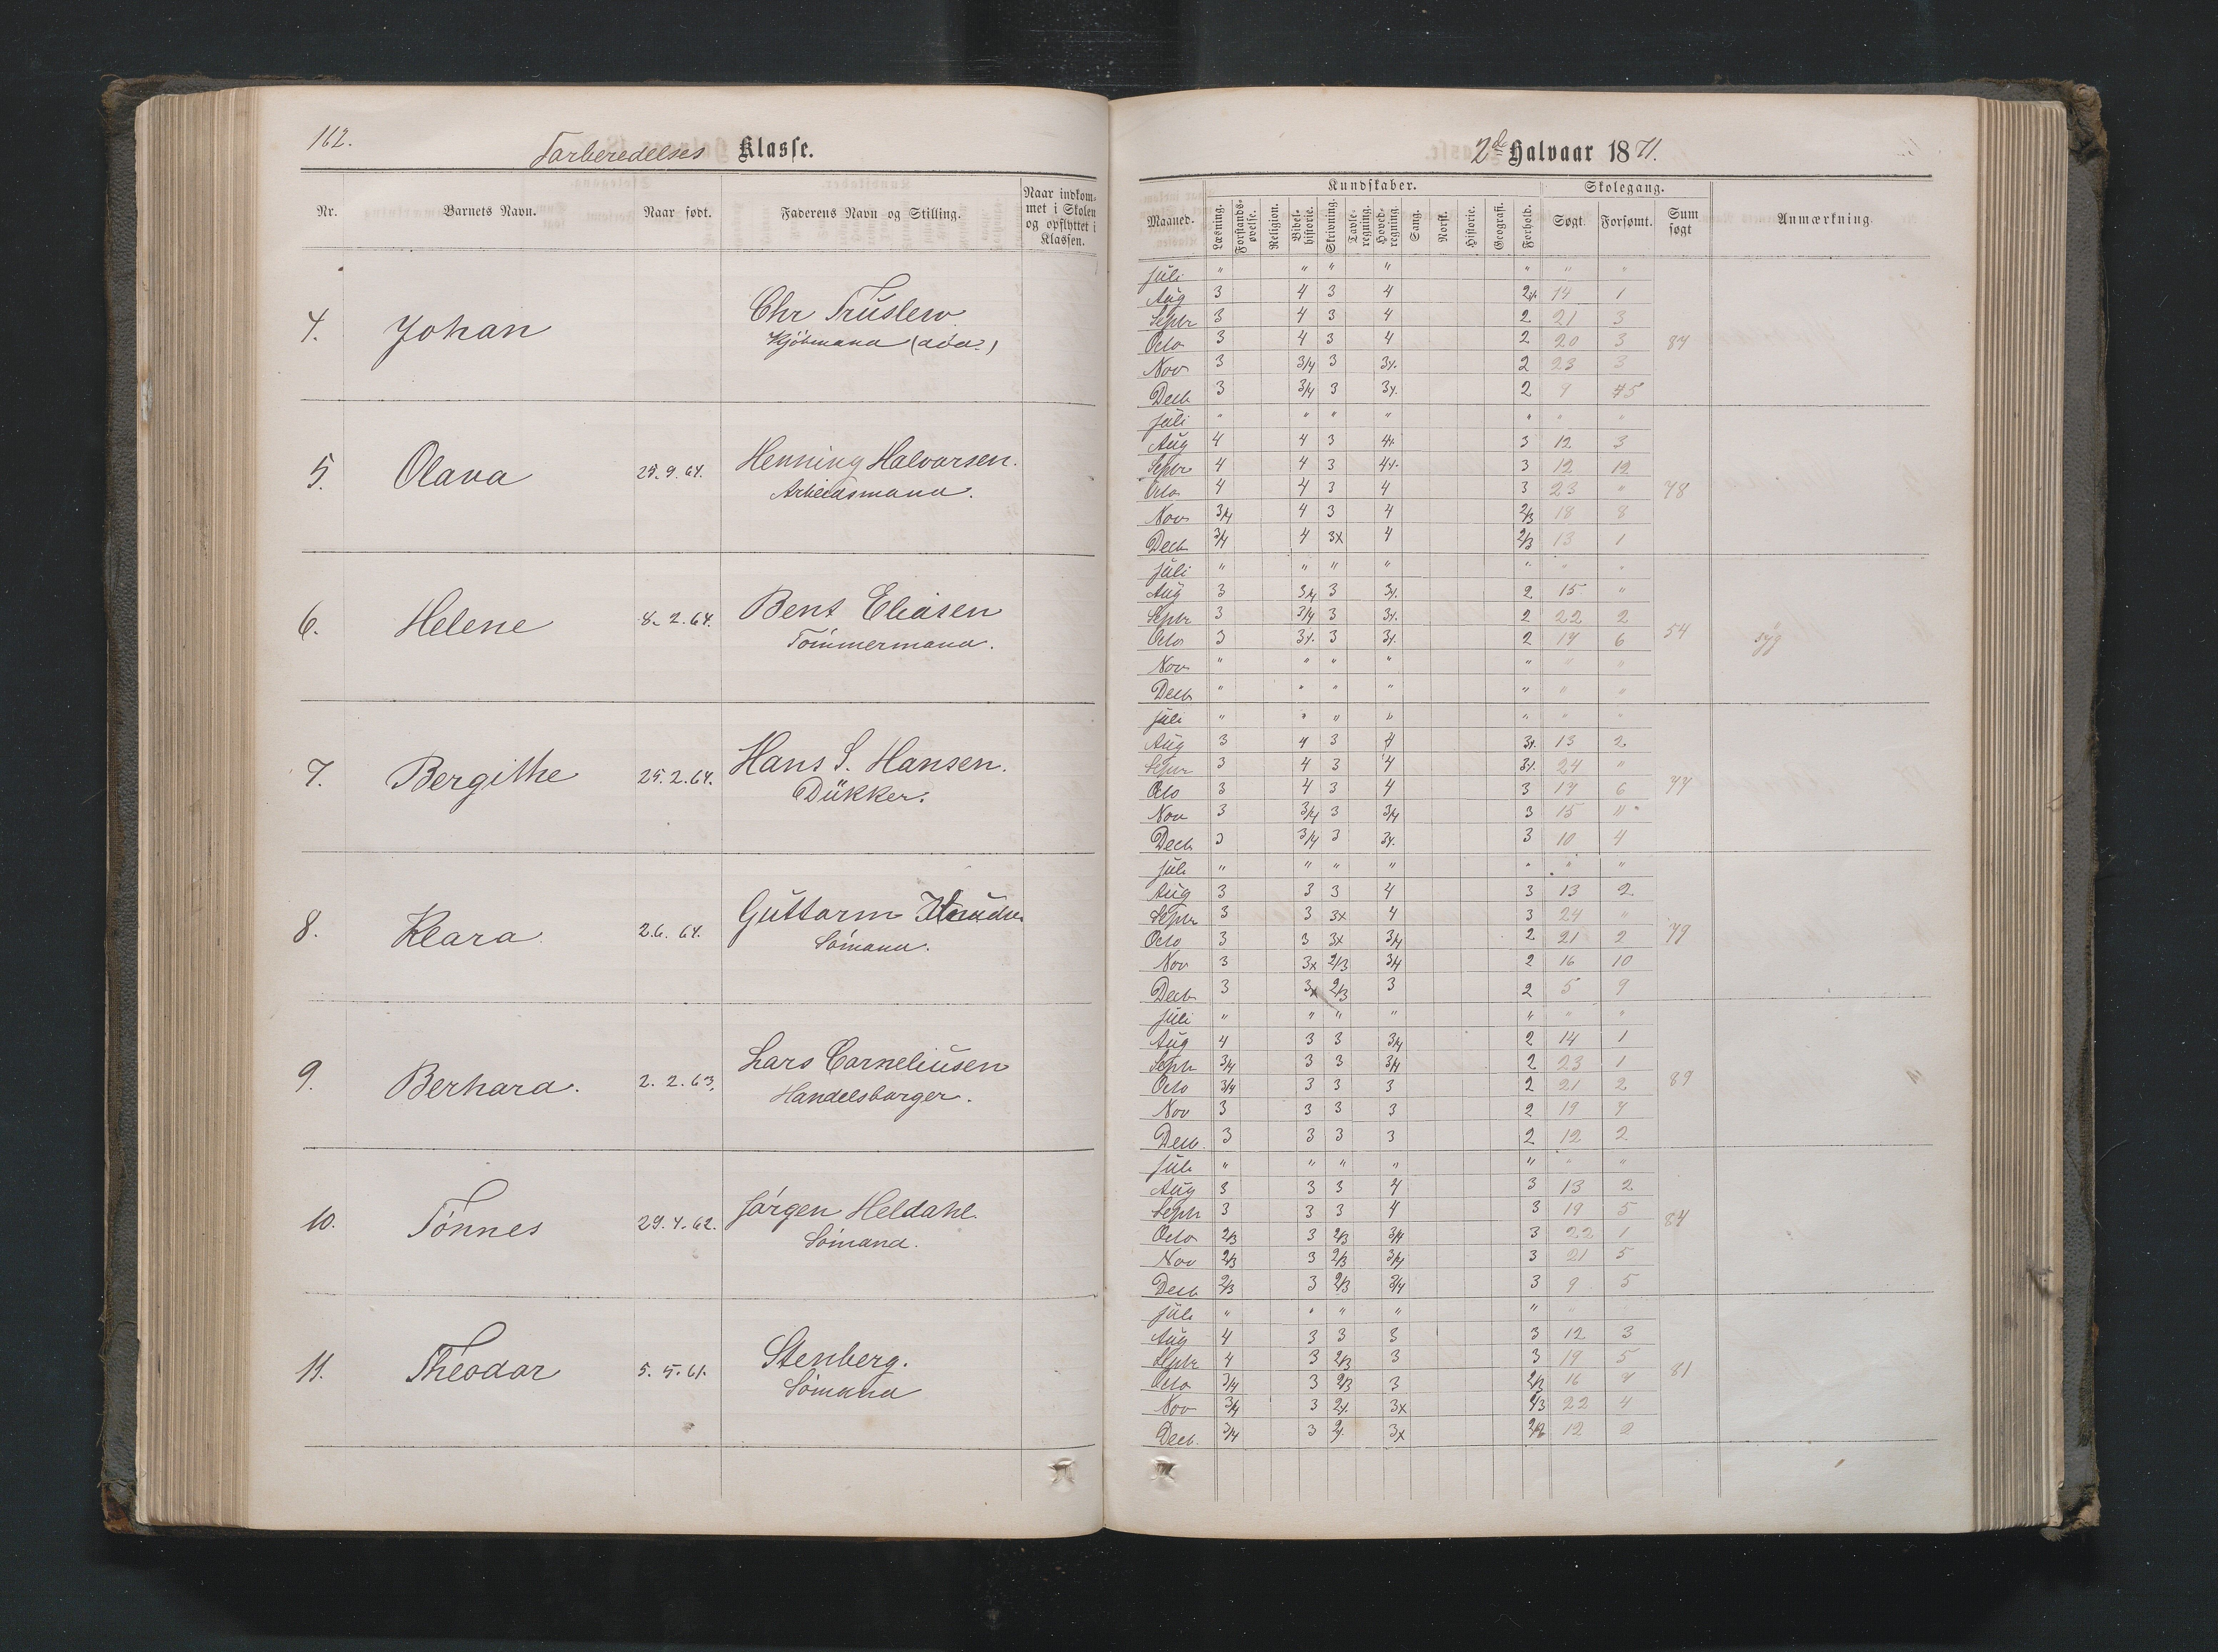 162.
Forberedelses Klasse.
Nr. Barnets Navn. Naar født. Faderens Navn og Stilling. Naar indkommet i Skolen og opflyttet i Klassen.
4. Johan Chr Truslew
Kjöbmand (död)
5. Olava 29.9.64. Henning Halvorsen.
Arbeidsmand.
6. Helene 8.2.64. Bent Eliasen
Tömmermand.
7. Bergithe 25.2.64. Hans S. Hansen.
Dükker.
8. Klara 2.6.64. Guttorm Knudsen
Sömand.
9. Berhard. 2.2.63. Lars Corneliusen
Handelsborger.
10. Tönnes 29.4.62. Jörgen Heldahl.
Sömand.
11. Theodor 5.5.61. Stenberg.
Sömand
2det Halvaar 1871.
Kundskaber. Skolegang.
Maaned. Læsning. Forstandsøvelse. Religion. Bibelhistorie. Skrivning. Tavleregning. Hovedregning. Sang. Norsk. Historie. Geografi. Forhold. Søgt. Forsømt. Sum søgt Anmærkning.
Juli " " " " " " "
Aug 3 4 3 4 14 1
Septr 3 4 3 4 2 21 3
Octo 3 4 3 4 2 20 3 87
Nov 3 3/4 3 2 23 3
Decb 3 3/4 3 2 9
Juli " " " " " " "
Aug 4 4 3 3 12 3
Septr 4 4 3 3 12 12
Octo 4 4 3 4 3 23 " 78
Nov 3/4 4 3 4 2/3 18 8
Decb 3/4 4 3x 4 2/3 13 1
Juli " " " " " " "
Aug 3 3/4 3 2 15 "
Septr 3 3/4 3 2 22 2
Octo 3 3 2 17 6 54 syg
Nov " " " " " " "
Decb " " " " " " "
Juli " " " " " " "
Aug 3 4 3 4 13 2
Septr 3 4 3 4 24 "
Octo 3 4 3 4 3 6 77
Nov 3 3/4 3 3/4 3 15 "
Decb 3 3/4 3 3 10 4
Juli " " " " " " "
Aug 3 3 3 4 3 13 2
Septr 3 3 3x 4 3 24 "
Octo 3 3 3x 3/4 2 21 2 79
Nov 3 3x 2/3 3/4 2 16 10
Decb 3 3x 2/3 3 2 5 9
Juli " " " " " " "
Aug 4 3 3 3/4 2 14 1
Septr 3/4 3 3 3/4 2 23 1
Octo 3/4 3 3 3 2 21 2 89
Nov 3 3 3 3 2 19 7
Decb. 3 3 3 3 2 12 2
Juli " " " " " " "
Aug 3 3 3 4 3 13 2
Septr 3 3 3 4 3 19 5
Octo 2/3 3 2/3 3/4 3 22 1 84
Nov 2/3 3 2/3 3/4 3 21 5
Decb 2/3 3 2/3 3/4 3 9 5
Juli " " " " " "
Aug 4 3 3 3 3 12 3
Septr 4 3 2/3 3 3 19 5
Octo 3/4 3 2/3 3 2/3 16 81
Nov 3/4 3 3x 2/3 22 4
Decb. 3/4 3 3x 12 2